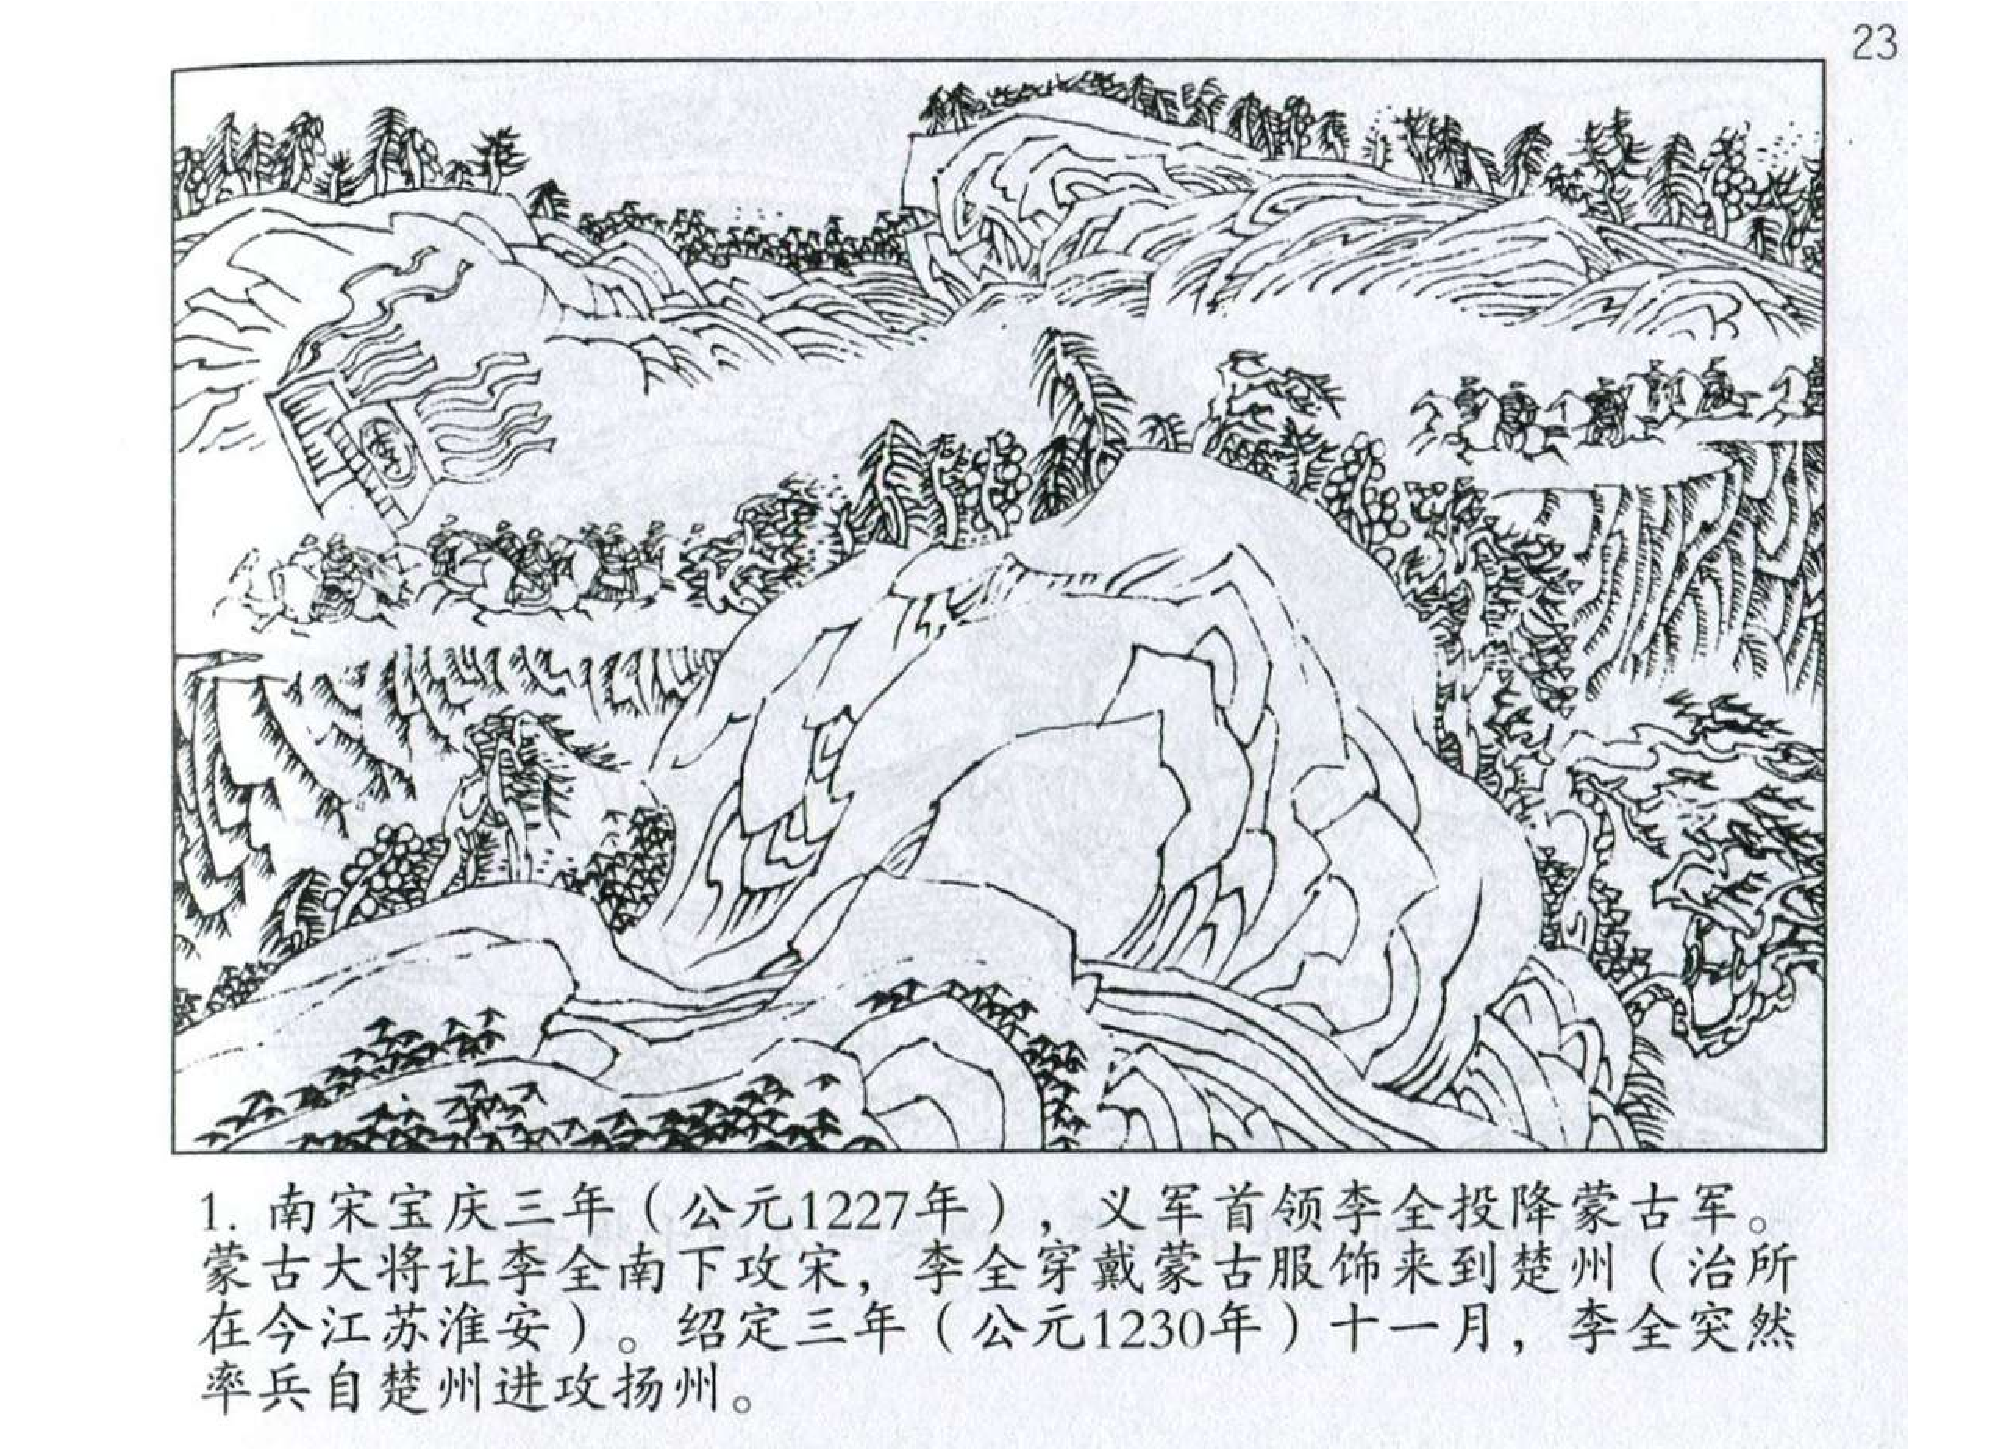 23
李
1. 南宋宝庆三年（公元1227年），义军首领李全投降蒙古军。
蒙古大将让李全南下攻宋，李全穿戴蒙古服饰来到楚州（治所
在今江苏淮安）。绍定三年（公元1230年）十一月，李全突然
率兵自楚州进攻扬州。